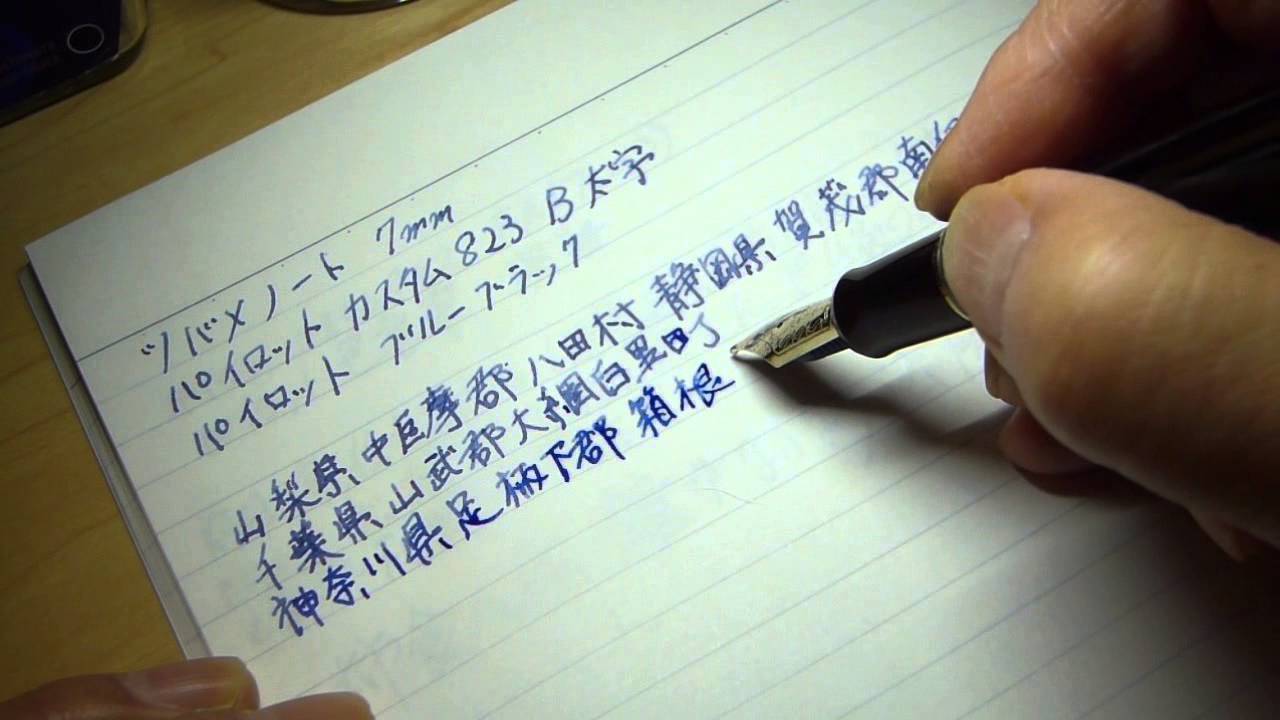 ツバメノート 7mm
パイロット カスタム823 B太字
パイロット ブルーブラック
山梨県中巨摩郡八田村 静岡県賀茂郡南
千葉県山武郡大網白里町
神奈川県足柄下郡箱根